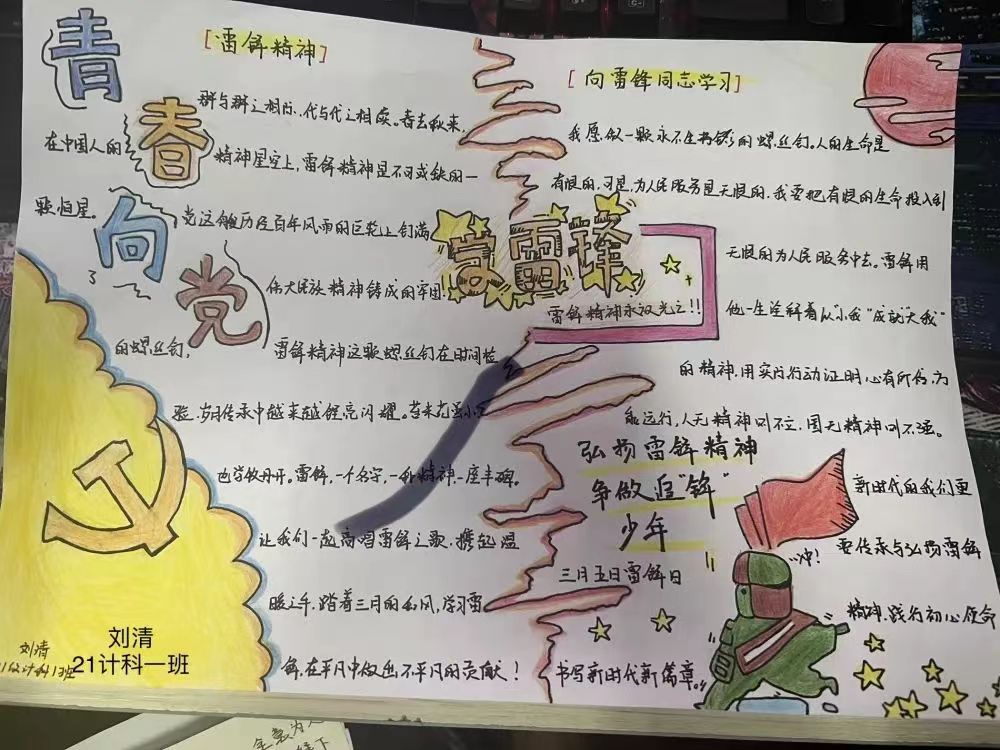 青春向党
[雷锋精神]
群与群之相似、代与代之相续。春去秋来,
在中国人的精神星空上,雷锋精神是不可或缺的一
颗恒星。党这艘历尽百年风雨的巨轮上钉满
伟大民族精神铸成的牢固
的螺丝钉,雷锋精神这颗螺丝钉在时间检
验、岁月传承中越来越锃亮闪耀。苔米花虽小
也学牡丹开。雷锋,一个名字,一种精神,一座丰碑。
让我们一起高唱雷锋之歌,携起温
暖之手,踏着三月的春风,学习雷
锋,在平凡中做出不平凡的贡献!
刘清
21级计科1班
刘清
21计科一班
学雷锋
雷锋精神永放光芒!!
[向雷锋同志学习]
我愿做一颗永不生锈的螺丝钉。人的生命是
有限的,可是,为人民服务是无限的,我要把有限的生命投入到
无限的为人民服务中去。雷锋用
他一生诠释着从“小我”成就“大我”
的精神,用实际行动证明,心有所信,方
能远行,人无精神则不立,国无精神则不强。
弘扬雷锋精神
争做追“锋”
少年
三月五日雷锋日
新时代的我们更
要传承与弘扬雷锋
精神,践行初心使命
书写新时代新篇章。
冲!